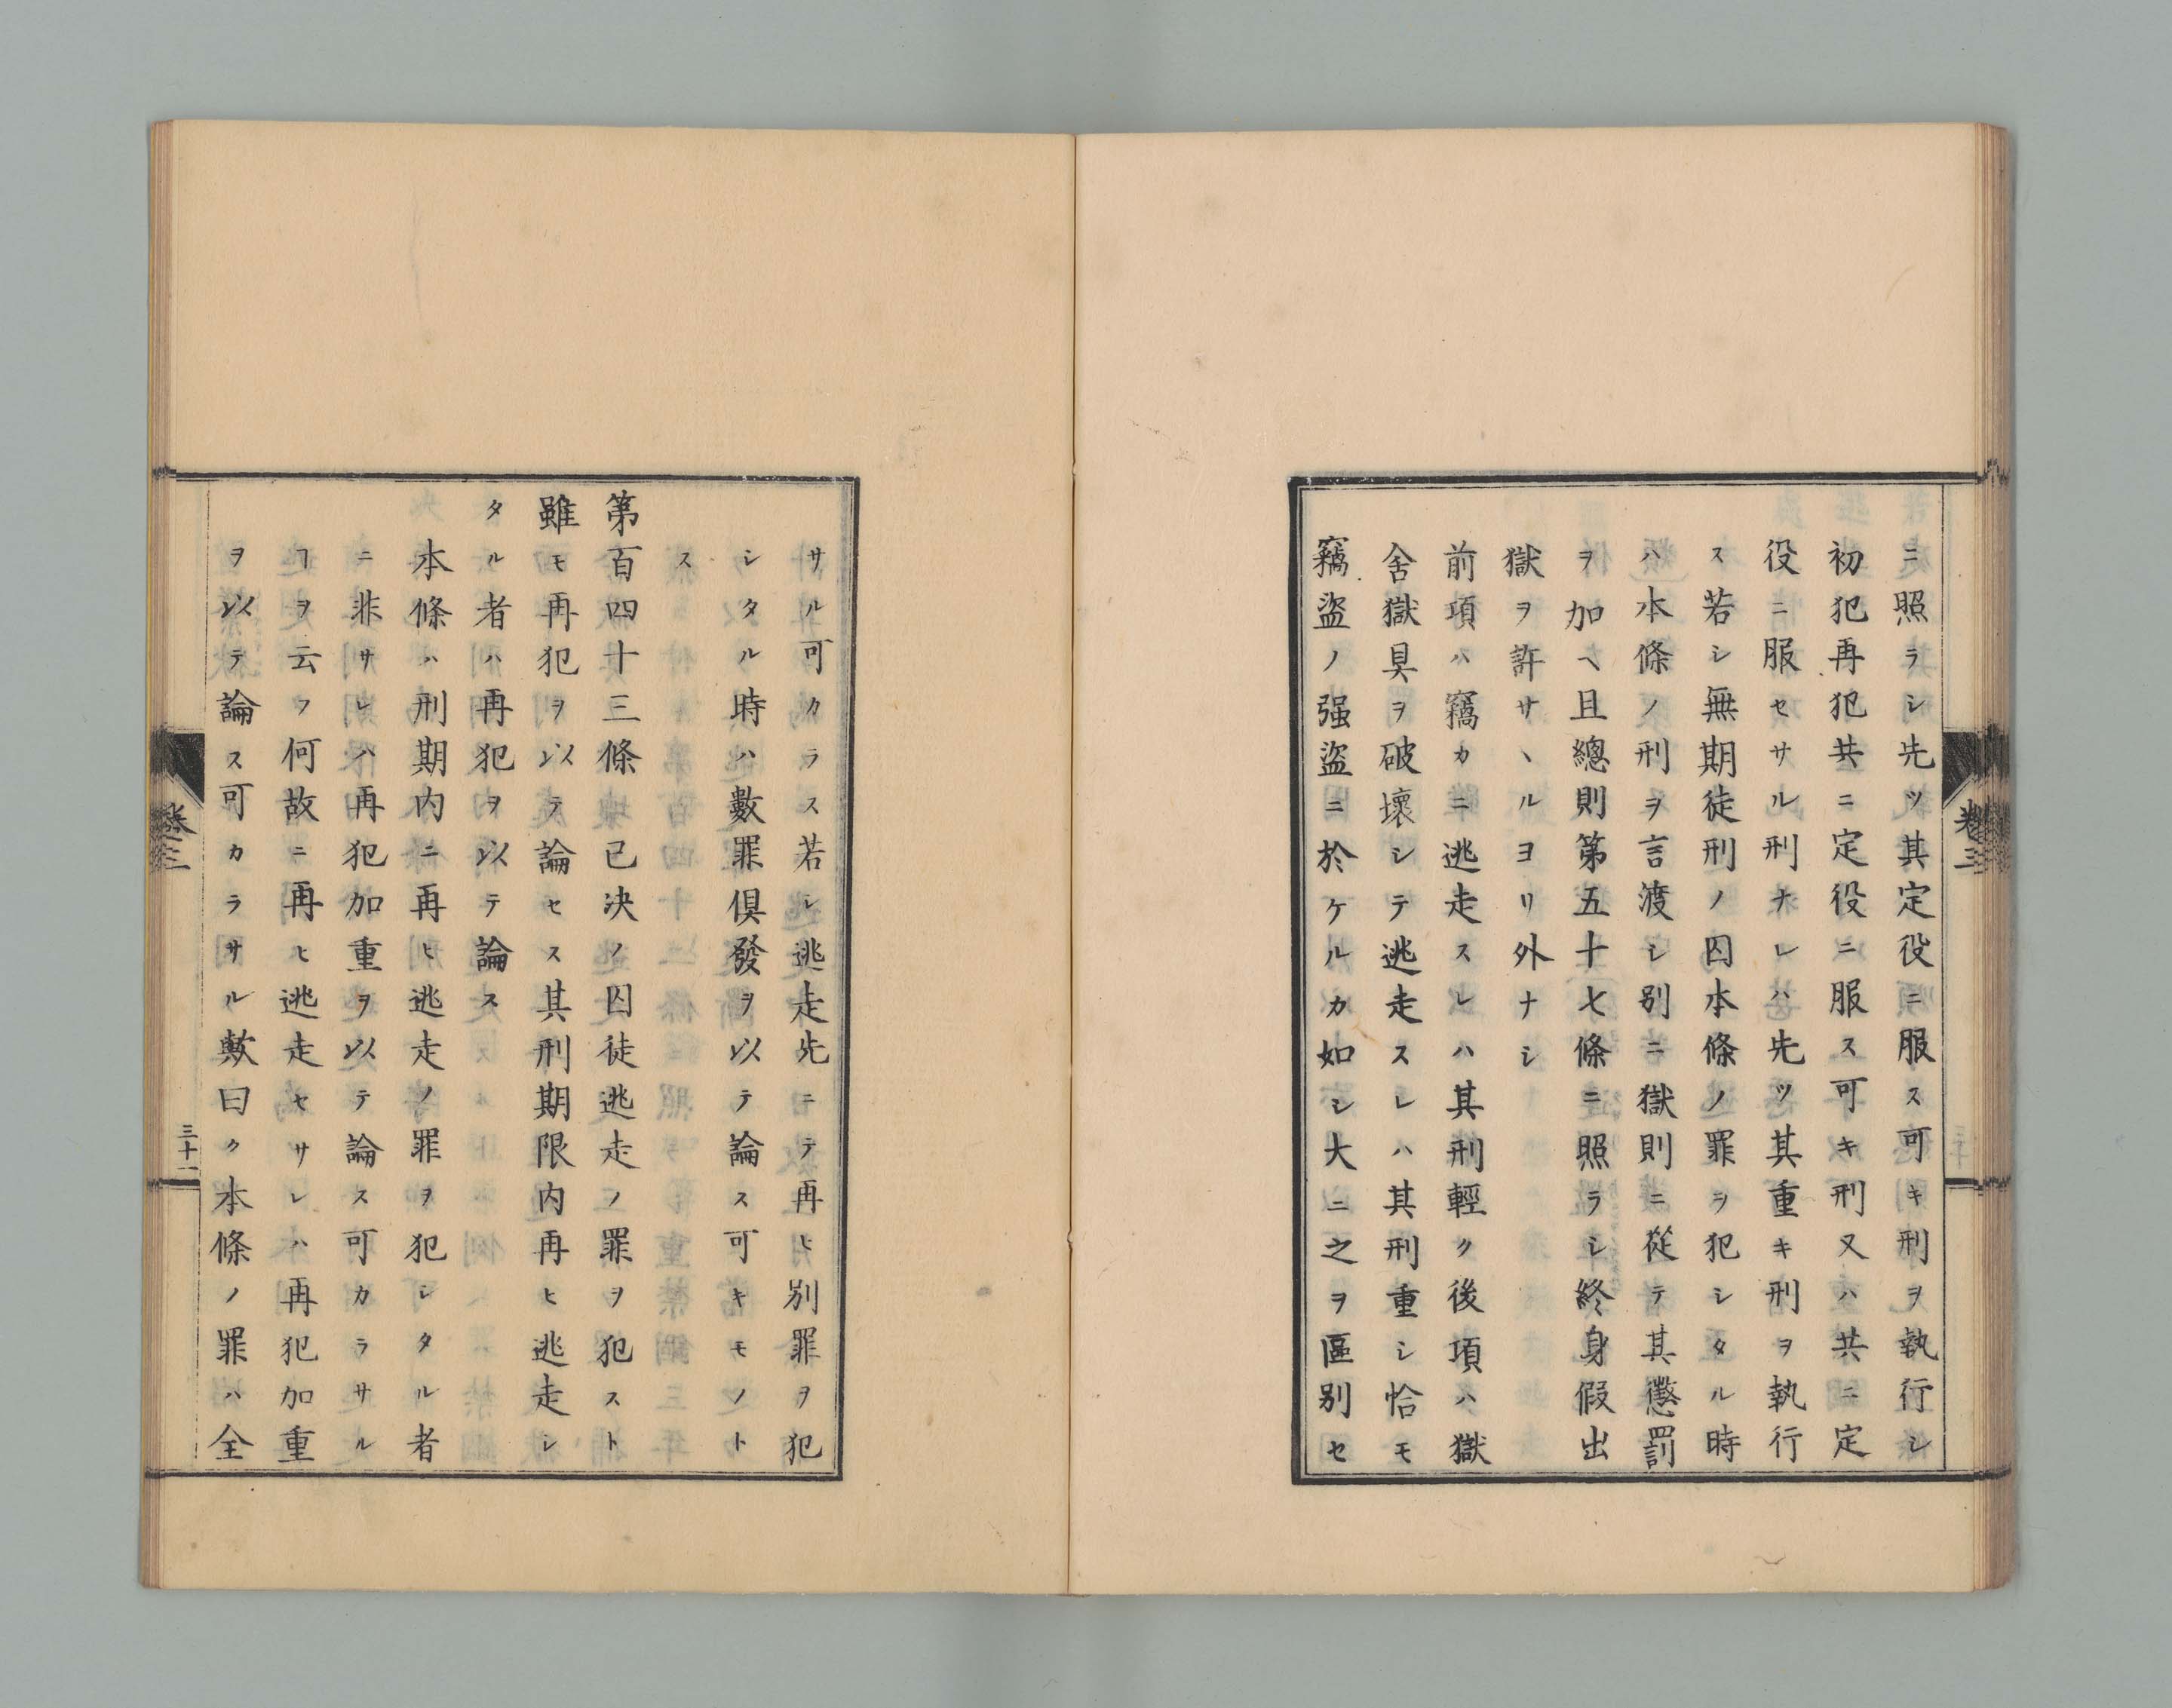 ニ照ラシ先ツ其定役ニ服ス可キ刑ヲ執行シ
初犯再犯共ニ定役ニ服ス可キ刑又ハ共ニ定
役ニ服セサル刑ナレハ先ツ其重キ刑ヲ執行
ス若シ無期徒刑ノ囚本條ノ罪ヲ犯シタル時
ハ本條ノ刑ヲ言渡シ別ニ獄則ニ從テ其懲罰
ヲ加ヘ且總則第五十七條ニ照ラシ終身假出
獄ヲ許サヽルヨリ外ナシ
前項ハ竊カニ逃走スレハ其刑輕ク後項ハ獄
舍獄具ヲ破壞シテ逃走スレハ其刑重シ恰モ
竊盜ノ强盜ニ於ケルカ如シ大ニ之ヲ區別セ
卷三
サル可カラス若シ逃走先ニテ再ヒ別罪ヲ犯
シタル時ハ數罪俱發ヲ以テ論ス可キモノト
ス
第百四十三條已决ノ囚徒逃走ノ罪ヲ犯スト
雖モ再犯ヲ以テ論セス其刑期限內再ヒ逃走シ
タル者ハ再犯ヲ以テ論ス
本條ハ刑期內ニ再ヒ逃走ノ罪ヲ犯シタル者
ニ非サレハ再犯加重ヲ以テ論ス可カラサル
ヿヲ云フ何故ニ再ヒ逃走セサレハ再犯加重
ヲ以テ論ス可カラサル歟曰ク本條ノ罪ハ全
卷三
三十一